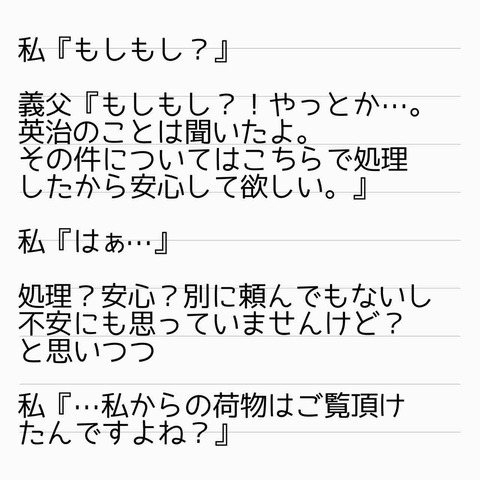 私『もしもし？』
義父『もしもし？！やっとか…。
英治のことは聞いたよ。
その件についてはこちらで処理
したから安心して欲しい。』
私『はぁ…』
処理？安心？別に頼んでもないし
不安にも思っていませんけど？
と思いつつ
私『…私からの荷物はご覧頂け
たんですよね？』